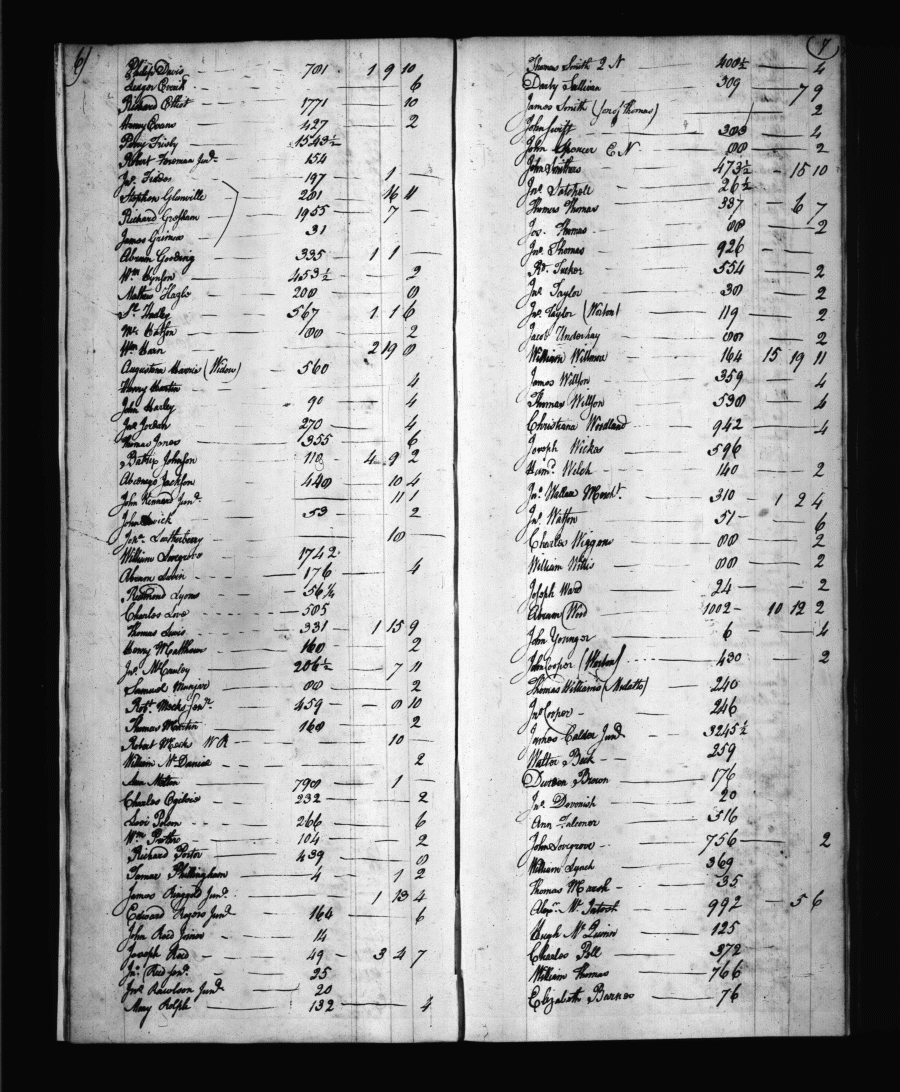 6)
Philip Davis 701 1 9 10
6
Richard Elliot 1771 10
Evans 427 2
Perry Frisby 1543½
Robert Foreman Junr. 154
Jno. 197 1
Stephen Glenville 201 16 11
Richard Gresham 1955 7
James Grimes 31
Abram Gooding 335 1 1
Wm. 453½ 2
Mathew Hagle 200 8
St. Hadley 567 1 1 6
Mr. 00 2
Wm. Harn 2 19 8
Augusteen Harris (Widow) 560
Henry 4
John Harley 90 4
Jno. Jordan 270 4
Thomas Jones 1355 6
Johnson 110 4 9 2
Abednego Jackson 440 10 4
John Kennard Junr. 11 1
John 53 2
Letherberry 10
William Lovegrove 1742
Abram 176 4
Redmond Lyons 56¼
Charles Love 505
Thomas Lewis 331 1 15 9
Henry Matthews 160 2
Jno. McCauley 206½ 7 11
Samuel Mungar 00 2
Robt. Meeks Senr. 459 8 10
Thomas Martin 160 2
Robert Meeks W R 10
William McDaniel 2
Ann 790 1
Charles Ogilvie 232 2
Levi 266 6
Wm. Porter 104 2
Richard Porter 439 8
Tamar Phillingham 4 1 2
James Ringgold Junr. 1 13 4
Edward Rogers Junr. 164 6
John Reed Junior 14
Joseph Reed 49 3 4 7
Jno. Reed Senr. 25
Jno. Rawleson Junr. 20
Mary Rolph 132 4
7
Thomas Smith 2 N 400½ 4
Darby Sullivan 309 7 9
James Smith (Son of Thomas) 2
John Swift 303 4
John Spencer E N 00 2
John Smithers 473½ 15 10
Jno. 26½
Thomas Thomas 387 6 7
Jos. Thomas 00 2
Jno. Thomas 926
Rd. Tucker 554 2
Jno. Taylor 30 2
Jno. Taylor (Worton) 119 2
Jacob Underhay 00 2
William Wilmer 164 15 19 11
James Willson 359 4
Thomas Willson 530 4
Christiana Woodland 942 4
Joseph Wickes 596
Welch 140 2
Jno. Wallace Mercht. 310 1 2 4
Jno. Watson 51 6
Charles Wiggons 00 2
William Willis 00 2
Joseph Ward 24 2
Abram Wood 1002 10 12 2
John Younger 6 4
Jno. Cooper (Worton) 430 2
Thomas Williams (Mulatto) 240
Jno. Cooper 246
James Calder Junr. 3245½
Walter Beck 259
Duncan Brown 176
Jno. Devonish 20
Ann Falconer 516
John Lovegrove 756 2
William Lynch 369
Thomas Marsh 35
Alexr. McIntosh 992 5 6
Hugh McQuinn 125
Charles Pell 372
William Thomas 766
Elizabeth Barnes 76